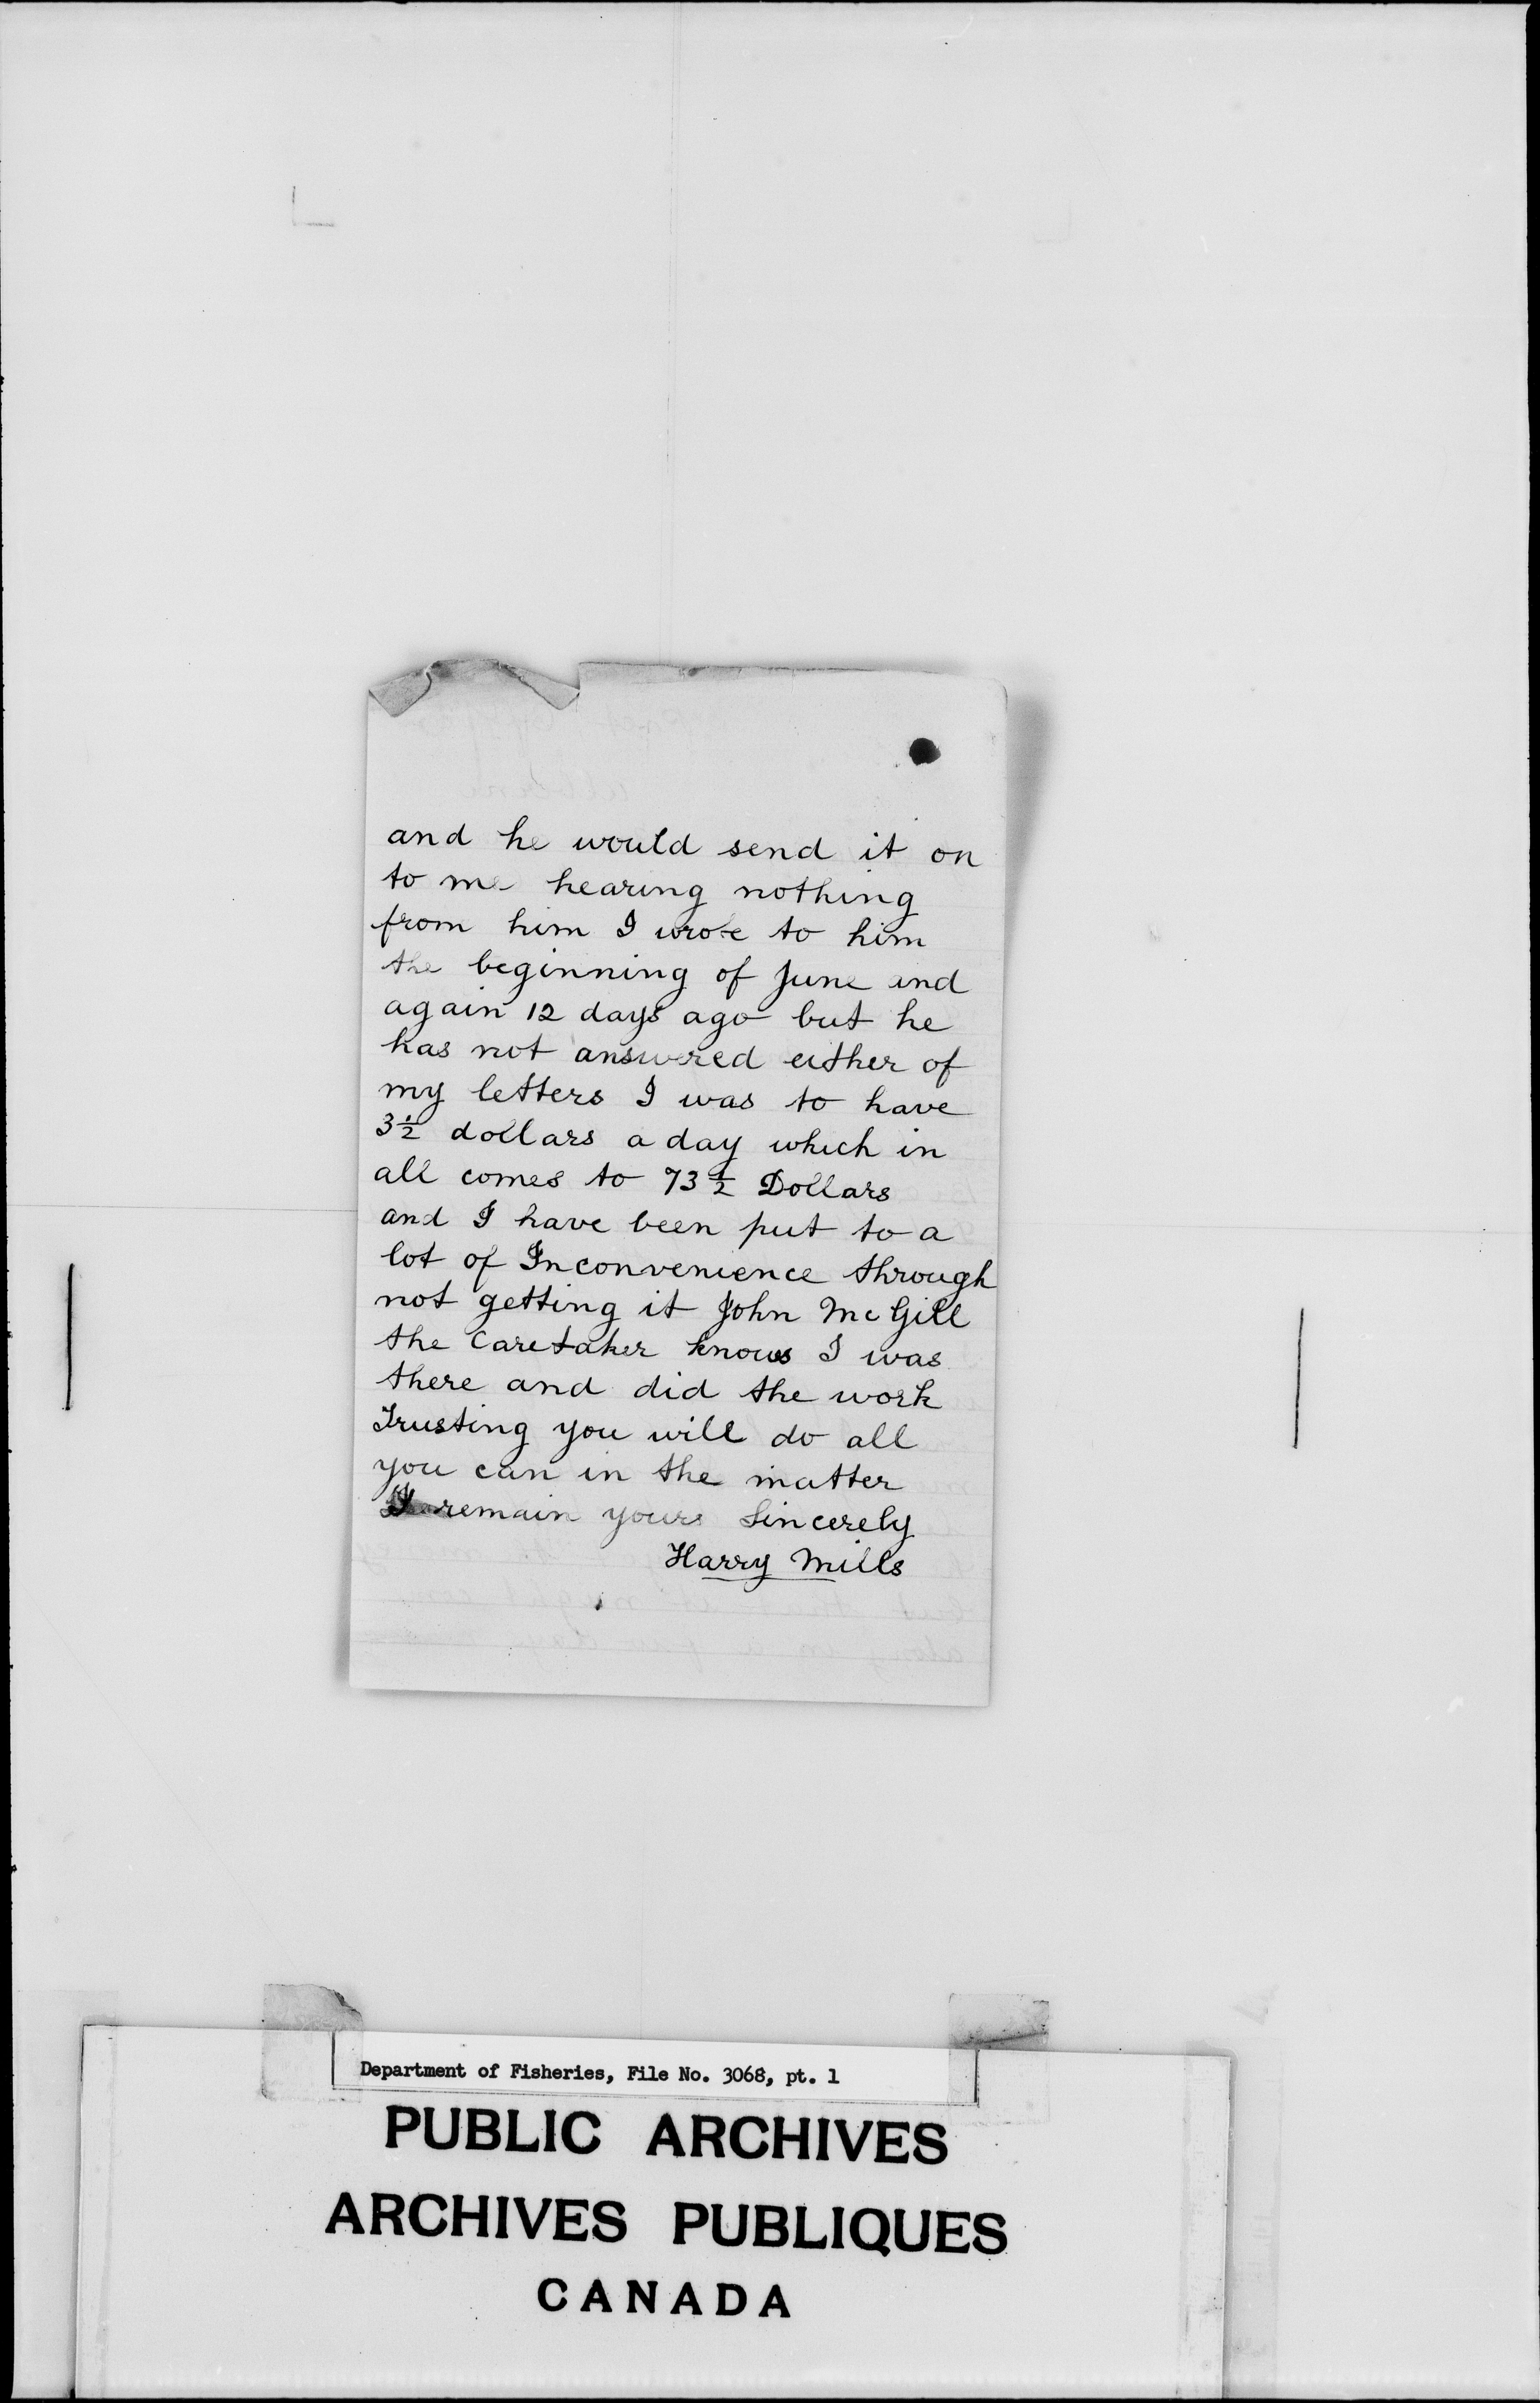 and he would send it on
to me hearing nothing
from him I wrote to him
the beginning of June and
again 12 days ago but he
has not answered either of
my letters I was to have
3½ dollars a day which in
all comes to 73½ Dollars
and I have been put to a
lot of Inconvenience through
not getting it John McGill
the Caretaker knows I was
there and did the work
Trusting you will do all
you can in the matter
I remain yours Sincerely
Harry Mills
Department of Fisheries, File No. 3068, pt. 1
PUBLIC ARCHIVES
ARCHIVES PUBLIQUES
CANADA